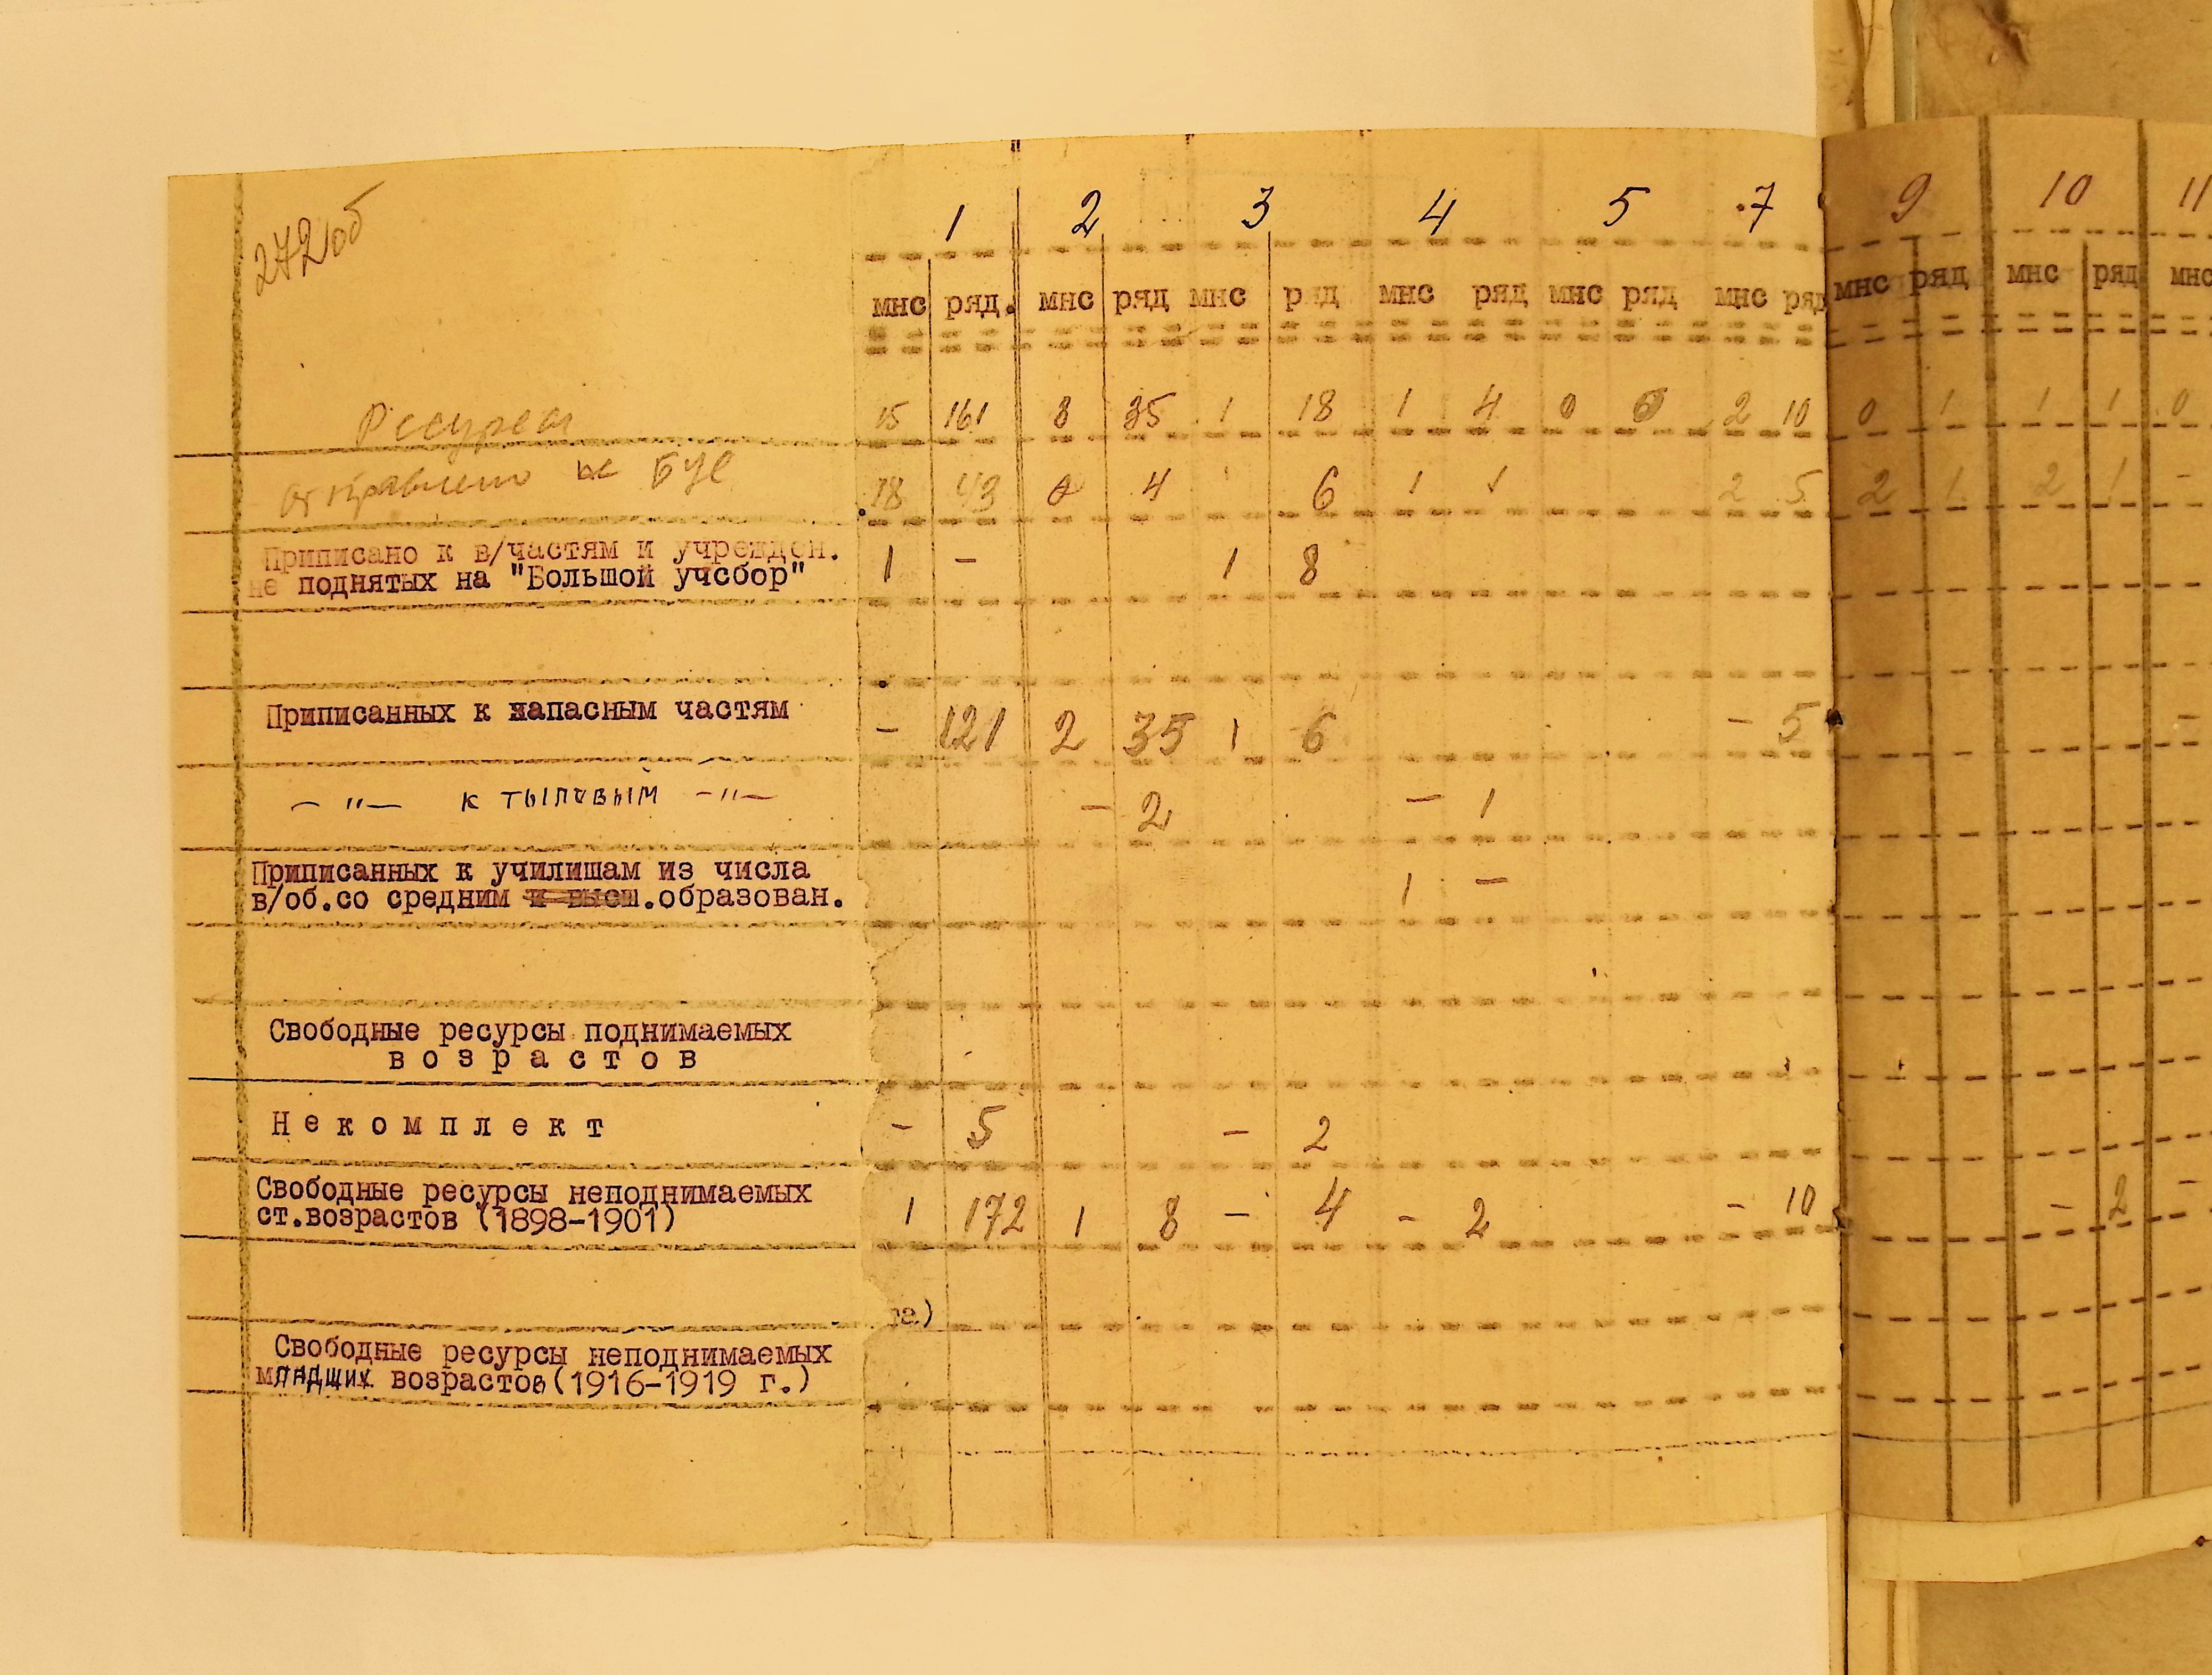 272об
1 2 3 4 5 7 9 10 11
мнс ряд. мнс ряд мнс р д мнс ряд мнс ряд мнс ряд мнс ряд мнс ряд мнс
Ресурсы 15 161 8 35 1 18 1 4 0 0 2 10 0 1 1 1 0
отправлено на БУС 18 43 0 4 1 6 1 1 2 5 2 1 2 1 -
Приписано к в/частям и учрежден.
не поднятых на "Большой учсбор" 1 - 1 8
Приписанных к запасным частям - 121 2 35 1 6 - 5 -
- " - к тыловым - " - - 2 - 1
Приписанных к училишам из числа
в/об.со средним и высш.образован. 1 -
Свободные ресурсы поднимаемых
возрастов
Некомплект - 5 - 2
Свободные ресурсы неподнимаемых
ст.возрастов (1898-1901) 1 172 1 8 - 4 - 2 - 10 - 2 -
га)
Свободные ресурсы неподнимаемых
младших возрастов(1916-1919 г.)